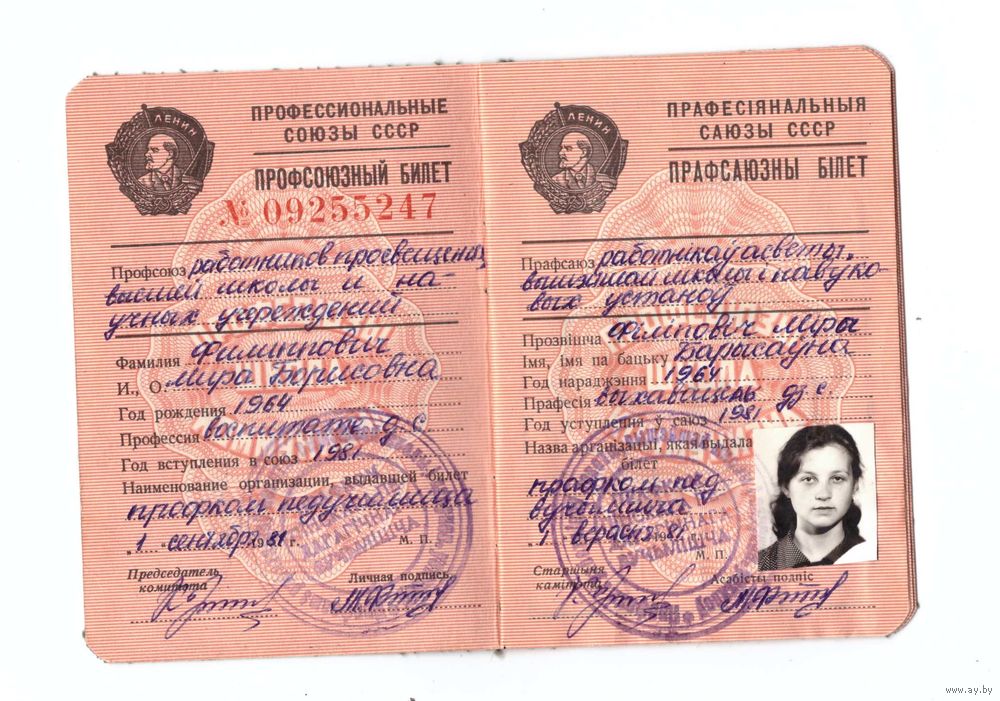 ЛЕНИН
ПРОФЕССИОНАЛЬНЫЕ
СОЮЗЫ СССР
ПРОФСОЮЗНЫЙ БИЛЕТ
№ 09255247
Профсоюз работников просвещения,
высшей школы и на-
учных учреждений
Фамилия Филиппович
И., О. Мира Борисовна
Год рождения 1964
Профессия воспитате. д. с.
Год вступления в союз 1981
Наименование организации, выдавшей билет
профком педучилища
„1 сентября 1981 г.
М. П.
Председатель
комитета
Личная подпись
ЛЕНИН
ПРАФЕСІЯНАЛЬНЫЯ
САЮЗЫ СССР
ПРАФСАЮЗНЫ БІЛЕТ
Прафсаюз работнікаў асветы,
вышэйшай школы і навуко-
вых устаноў
Прозвішча Філіповіч Міра
Імя, імя па бацьку Барысаўна
Год нараджэння 1964
Прафесія выхавацель дз. с.
Год уступлення ў саюз 1981
Назва арганізацыі, якая выдала
білет
прафком пед.
вучылішча
„1 верасня 1981 г.
М. П.
Старшыня
камітэта
Асабісты подпіс
www.ay.by